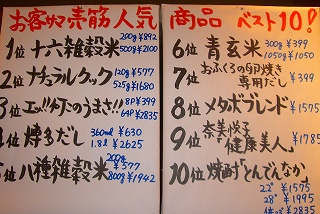 お客サマ売筋人気
1位 十六雑穀米 200g ¥892
500g ¥2100
2位 ナチュラルクック 120g ¥577
525g ¥1680
3位 8P ¥399
64P ¥2835
4位 博多だし 360ml ¥630
1.8ℓ ¥2625
5位 八種雑穀米 200g ¥577
800g ¥1942
商品 ベスト10!
6位 青玄米 300g ¥399
1050g ¥1050
7位 おふくろの卵焼き専用だし ¥399
8位 メタボブレンド ¥1575
9位 奈美悦子「健康美人」 ¥1785
10位 焼酎「とんでんなか」
22° ¥1575
28° ¥1995
¥2835